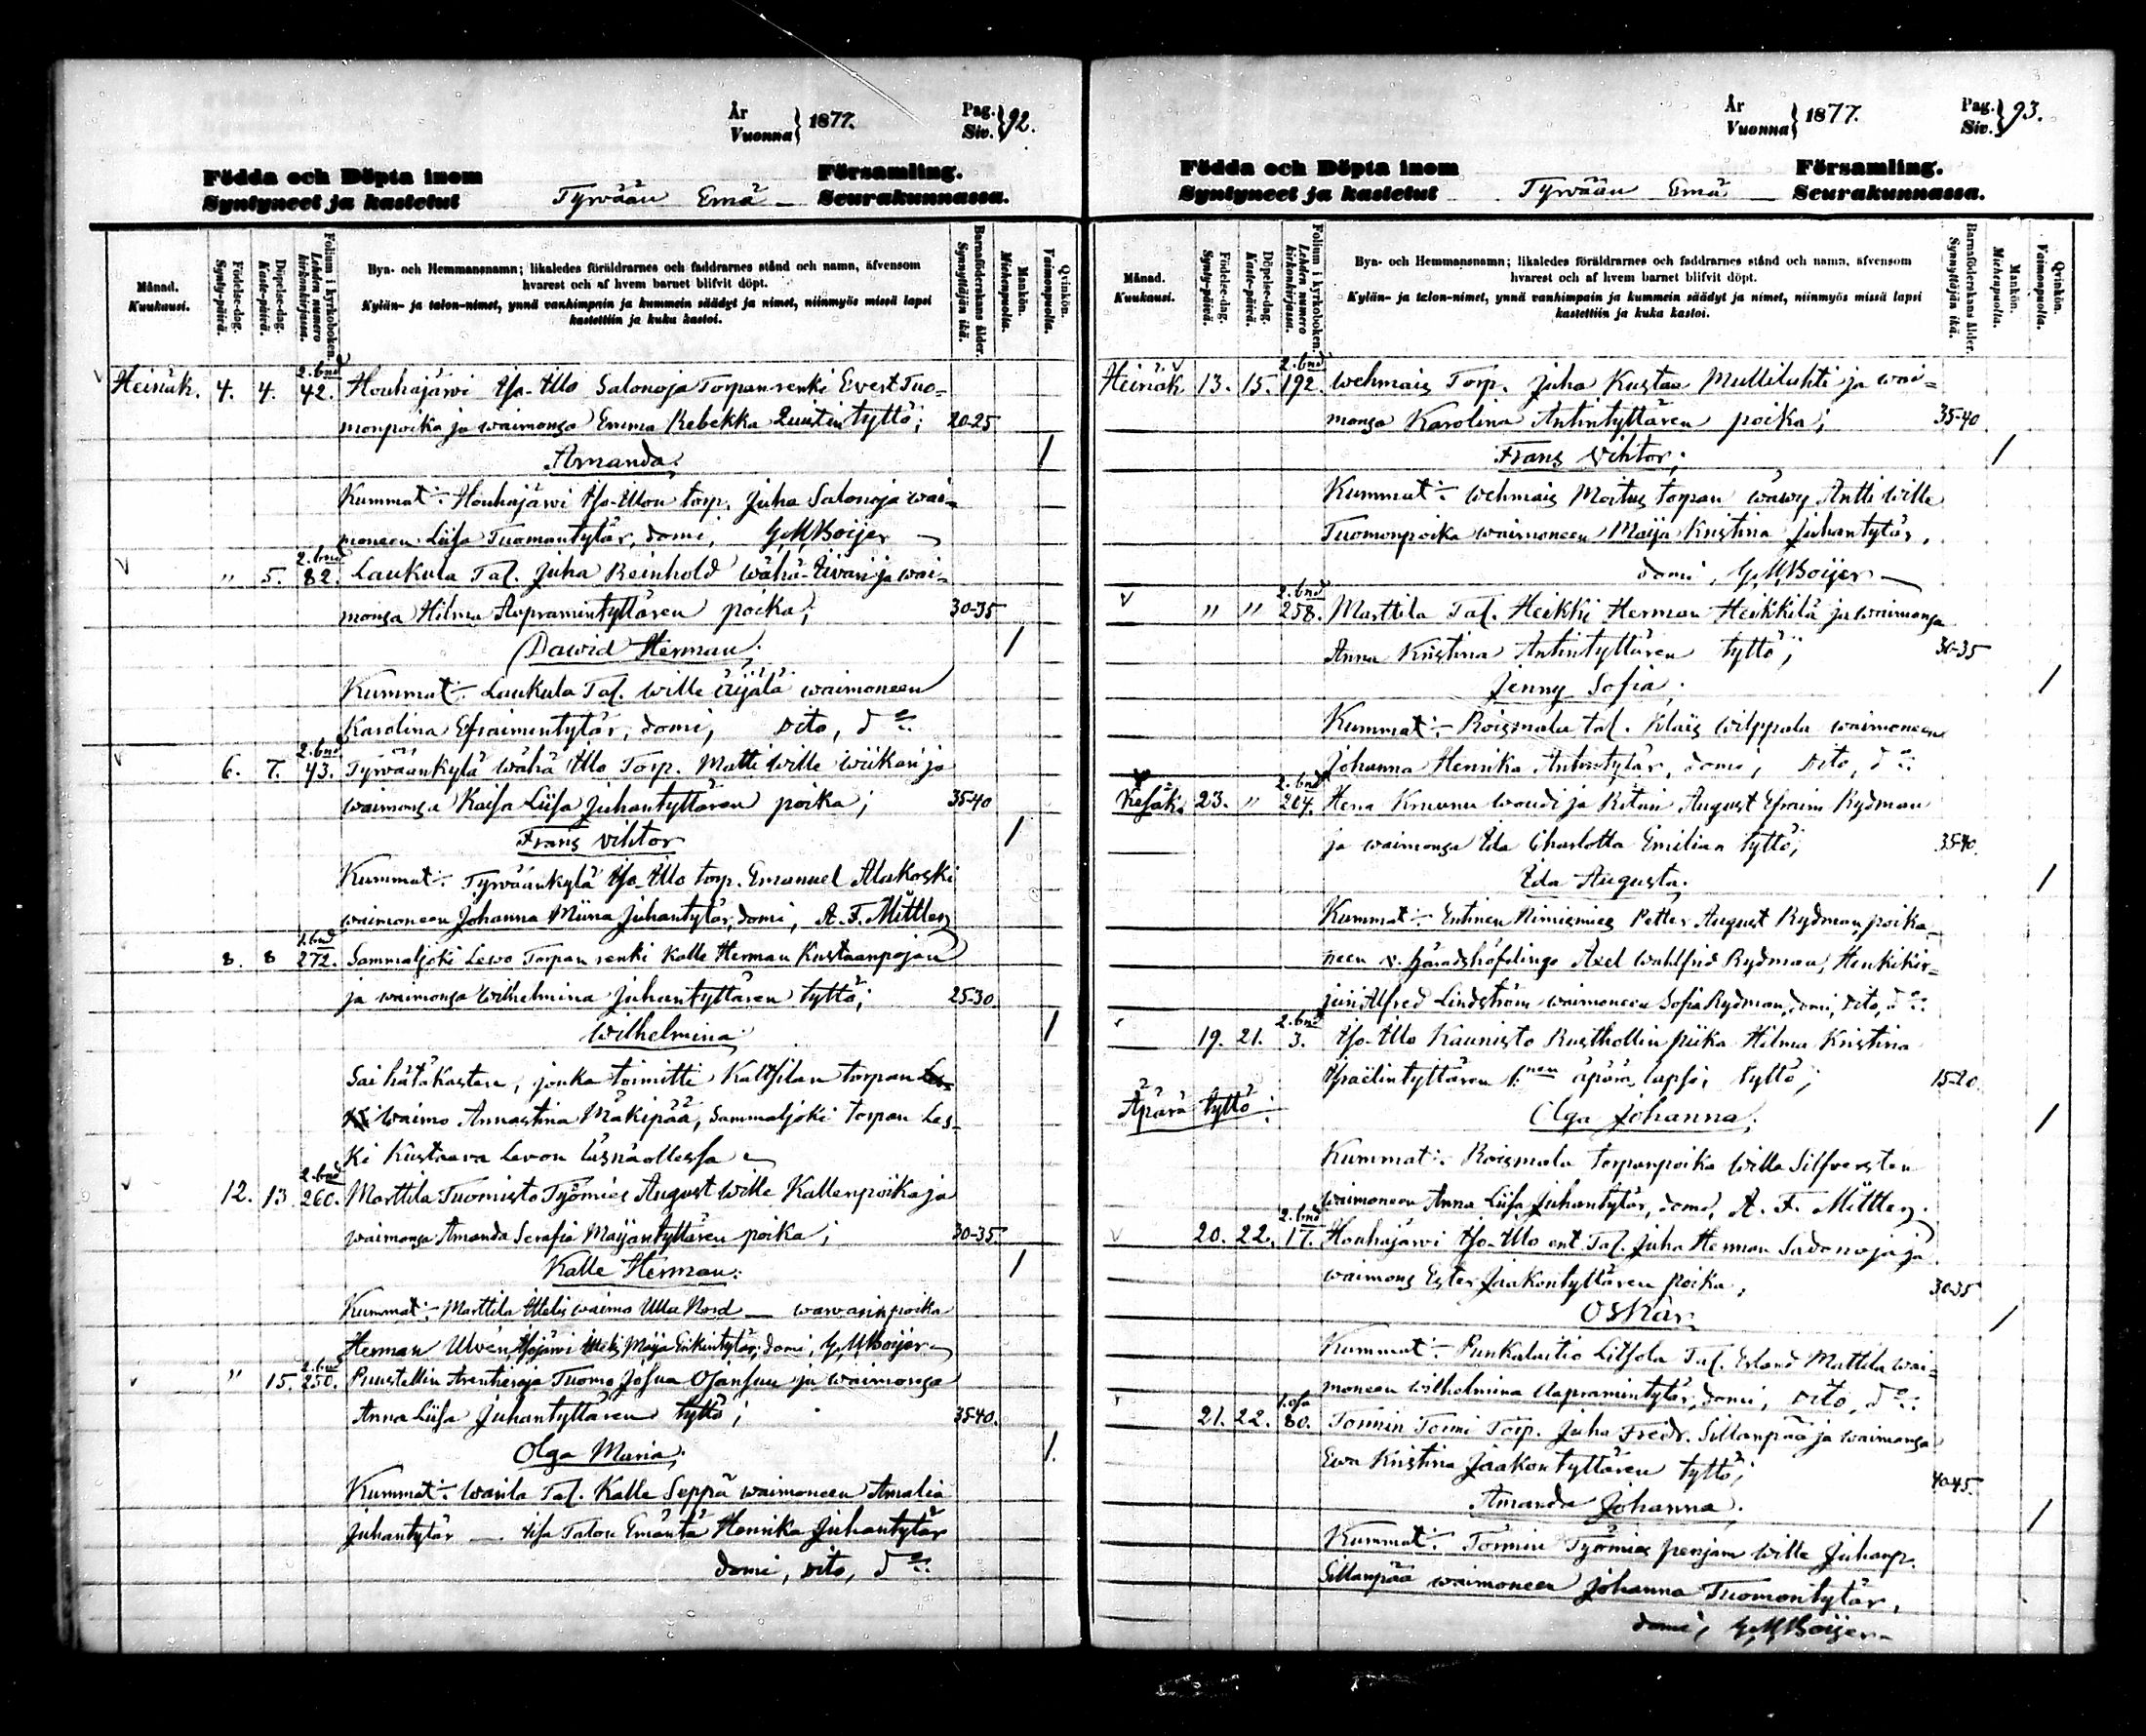 År
Vuonna } 1877.
Pag.
Siv. } 92.
Födda och Döpta inom Församling.
Syntyneet ja kastetut Tyrvään Emä Seurakunnassa.
Månad.
Kuukausi.
Födelse-dag.
Synty-päivä.
Döpelse-dag.
Kaste-päivä.
Folium i kyrkoboken.
Lehden numero kirkonkirjassa.
Bya- och Hemmansnamn; likaledes föräldrarnes och faddrarnes stånd och namn, äfvensom
hvarest och af hvem barnet blifvit döpt.
Kylän- ja talon-nimet, ynnä vanhimpain ja kummein säädyt ja nimet, niinmyös missä lapsi
kastettiin ja kuka kastoi.
Barnaföderskans ålder.
Synnyttäjän ikä.
Mankön.
Miehenpuolta.
Qvinkön.
Vaimonpuolta.
Heinäk. 4. 4. 2. bnd 42. Houhajärwi Iso-Illo Salonoja Torpan renki Evert Tuo=
monpoika ja waimonsa Emma Rebekka Quintin tyttö; 20-25
Amanda. /
Kummat: Houhajärwi Iso-Illon torp. Juha Salonoja wai=
moneen Liisa Tuomantytär, domi, G M Boijer
" 5. 2. bnd 82. Laukula Tal. Juha Reinhold Wähä-Iiwari ja wai=
monsa Hilma Aapramintyttären poika; 30-35
Dawid Herman. /
Kummat: Laukula Tal. Wille Äijälä waimoneen
Karolina Efraimintytär, domi, dito, d:o
6. 7. 2. bnd 43. Tyrwäänkylä Wähä Illo Torp. Matti Wille Wiikari ja
waimonsa Kaisa Liisa Juhantyttären poika; 35-40
Frans Vihtor /
Kummat: Tyrwäänkylä Iso-Illo torp. Emanuel Alakoski
waimoneen Johanna Miina Juhantytär, domi, A. F. Mittler
8. 8 1. bnd 272. Sammaljoki Lewo Torpan renki Kalle Herman Kustaanpojan
ja waimonsa Wilhelmina Juhantyttären tyttö; 25-30.
Wilhelmina /
Sai hätäkasteen, jonka toimitti Kaltsilan torpan
waimo Annastina Mäkipää, Sammaljoki torpan Les=
ki Kustaava Levon läsnäollessa
12. 13 2. bnd 260. Marttila Tuomisto Työmies August Wille Kallenpoika ja
waimonsa Amanda Serafia Maijantyttären poika; 30-35.
Kalle Herman: /
Kummat: Marttila Itelis waimo Ulla Nord — warwarinpoika
Herman Ulvén, Itelis Maija Erikintytär, domi, G M Boijer
" 15. 2. bnd 250. Puustellin Arentieraja Tuomo Josua Ojansuu ja waimonsa
Anna Liisa Juhantyttären tyttö; 35-40.
Olga Maria; /
Kummat: Warila Tal. Kalle Seppä waimoneen Amalia
Juhantytär — Talon Emäntä Henrika Juhantytär
domi, dito, d:o
År
Vuonna } 1877.
Pag.
Siv. } 93.
Födda och Döpta inom Församling.
Syntyneet ja kastetut Tyrvään Emä Seurakunnassa.
Månad.
Kuukausi.
Födelse-dag.
Synty-päivä.
Döpelse-dag.
Kaste-päivä.
Folium i kyrkoboken.
Lehden numero kirkonkirjassa.
Bya- och Hemmansnamn; likaledes föräldrarnes och faddrarnes stånd och namn, äfvensom
hvarest och af hvem barnet blifvit döpt.
Kylän- ja talon-nimet, ynnä vanhimpain ja kummein säädyt ja nimet, niinmyös missä lapsi
kastettiin ja kuka kastoi.
Barnaföderskans ålder.
Synnyttäjän ikä.
Mankön.
Miehenpuolta.
Qvinkön.
Vaimonpuolta.
Heinäk. 13. 15. 2. bnd 192. Wehmais Torp. Juha Kustaa Mullilahti ja wai=
monsa Karolina Antintyttären poika; 35-40
Frans Vihtor; /
Kummat: Wehmais torpan wäwy Antti Wille
Tuomonpoika waimoneen Maija Kristina Juhantytär,
domi, G M Boijer
" " 2. bnd 258. Marttila Tal. Heikki Herman Heikkilä ja waimonsa
Anna Kristina Antintyttären tyttö; 30-35
Jenny Sofia. /
Kummat: Roismala tal. Klais Wilppala waimoneen
Johanna Henrika Antintytär, domi, dito, d:o
Kesäk. 23. " 2. bnd 204. Herra Kruunu Woudi ja Ritari August Efraim Rydman
ja waimonsa Ida Charlotta Emilian tyttö; 35-40.
Ida Augusta; /
Kummat: Entinen Nimismies Petter August Rydman poika=
neen v. häradshöfdinge Axel Wahlfrid Rydman, Henkikir=
juri Alfred Lindström waimoneen Sofia Rydman, domi, dito, d:o
19. 21. 2. bnd 3. Iso-Illo Kaunisto Rusthollin piika Hilma Kristina
Israelintyttären 1:nen äpärä lapsi, tyttö; 15-20.
Äpärä tyttö: Olga Johanna; /
Kummat: Roismala torpanpoika Wille Silfversten
waimoneen Anna Liisa Juhantytär, domi, A. F. Mittler.
20. 22. 2. bnd 17. Houhajärwi Iso-Illo ent Tal. Juha Herman Sadonoja ja
waimons Ester Jaakontyttären poika, 30-35
Oskar /
Kummat: Punkalaitio Liisola Tal. Erland Mattila wai=
moneen Wilhelmina Aapramintytär, domi, dito, d:o
21. 22. 1. osa 80. Tonnin Tomi Torp. Juha Fredr. Sillanpää ja waimonsa
Ewa Kristina Jaakontyttären tyttö; 40-45.
Amanda Johanna. /
Kummat: Tonnin Työmies Penjam Wille Juhanp.
Sillanpää waimoneen Johanna Tuomontytär,
domi, G M Boijer